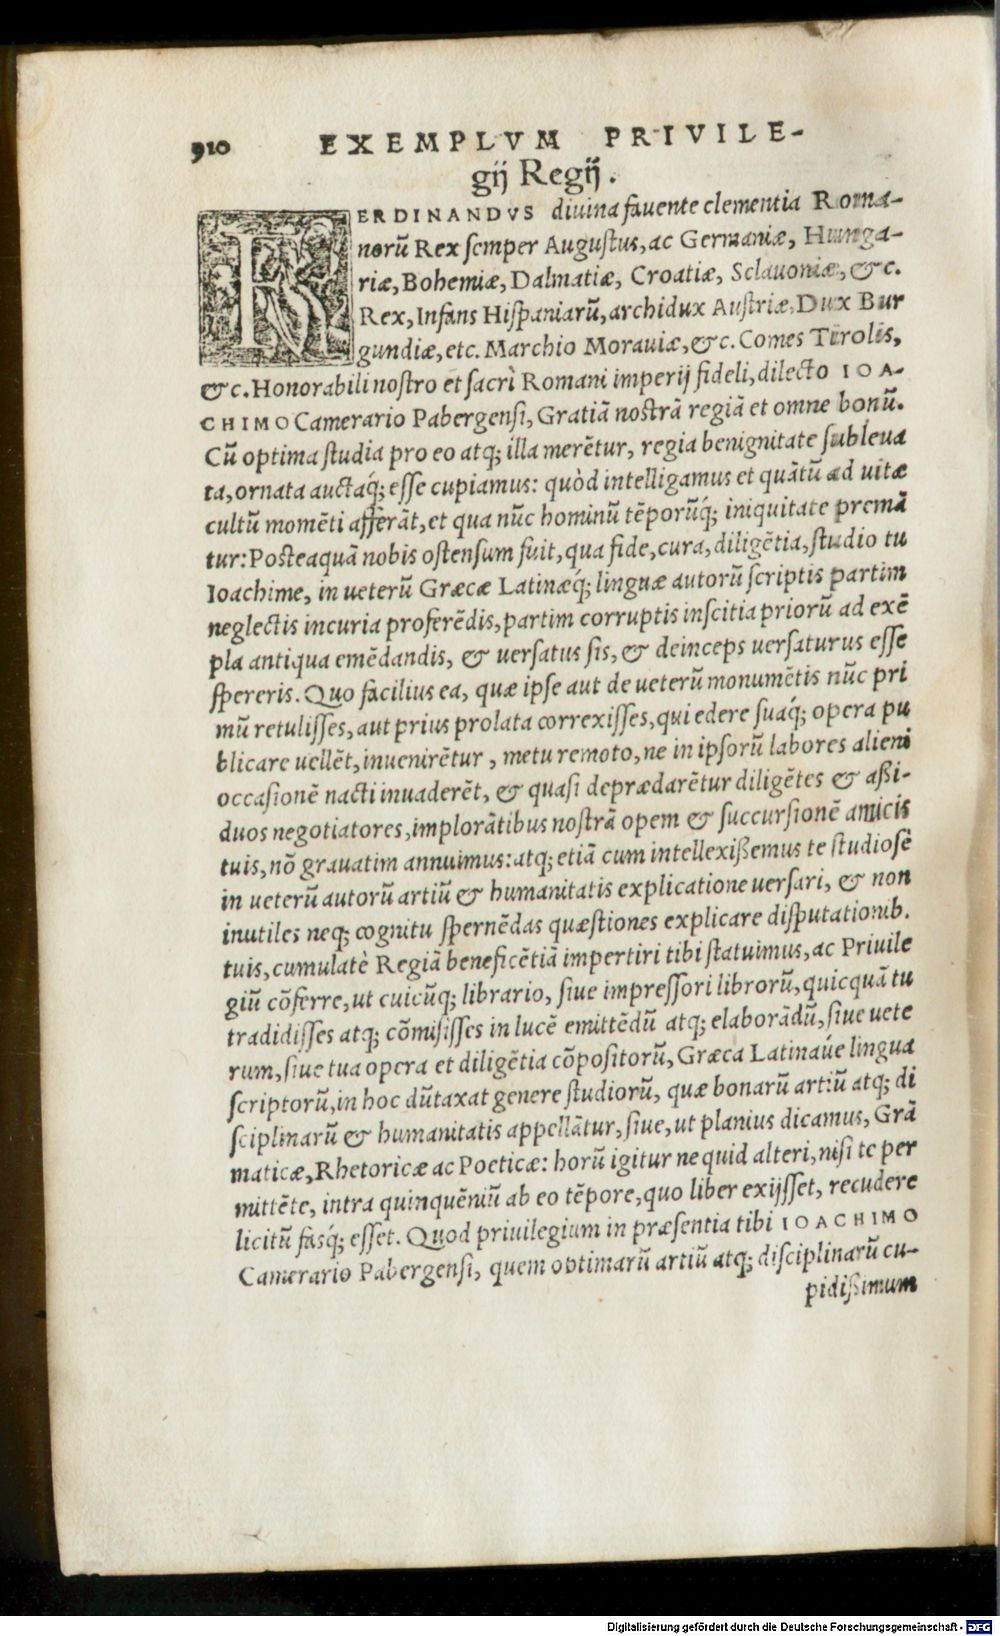 910 EXEMPLVM PRIVILE-
gij Regij.
FERDINANDVS diuina fauente clementia Roma-
norũ Rex semper Augustus, ac Germaniæ, Hunga-
riæ, Bohemiæ, Dalmatiæ, Croatiæ, Sclauoniæ, &c.
Rex, Infans Hispaniarũ, archidux Austriæ, Dux Bur
gundiæ, etc. Marchio Morauiæ, &c. Comes Tirolis,
&c. Honorabili nostro et sacri Romani imperij fideli, dilecto IOA-
CHIMO Camerario Pabergensi, Gratiã nostrã regiã et omne bonũ.
Cũ optima studia pro eo atq; illa merẽtur, regia benignitate subleua
ta, ornata auctaq́; esse cupiamus: quòd intelligamus et quãtũ ad uitæ
cultũ momẽti afferãt, et qua nũc hominũ tẽporũq́; iniquitate premã
tur: Posteaquã nobis ostensum fuit, qua fide, cura, diligẽtia, studio tu
Ioachime, in ueterũ Græcæ Latinæq́; linguæ autorũ scriptis partim
neglectis incuria proferẽdis, partim corruptis inscitia priorũ ad exẽ
pla antiqua emẽdandis, & uersatus sis, & deinceps uersaturus esse
spereris. Quo facilius ea, quæ ipse aut de ueterũ monumẽtis nũc pri
mũ retulisses, aut prius prolata correxisses, qui edere suaq́; opera pu
blicare uellẽt, inuenirẽtur, metu remoto, ne in ipsorũ labores alieni
occasionẽ nacti inuaderẽt, & quasi deprædarẽtur diligẽtes & aßi-
duos negotiatores, implorãtibus nostrã opem & succursionẽ amicis
tuis, nõ grauatim annuimus: atq; etiã cum intellexißemus te studiosè
in ueterũ autorũ artiũ & humanitatis explicatione uersari, & non
inutiles neq; cognitu spernẽdas quæstiones explicare disputationib.
tuis, cumulatè Regiã beneficẽtiã impertiri tibi statuimus, ac Priuile
giũ cõferre, ut cuicũq; librario, siue impressori librorũ, quicquã tu
tradidisses atq; cõmisisses in lucẽ emittẽdũ atq; elaborãdũ, siue uete
rum, siue tua opera et diligẽtia cõpositorũ, Græca Latinaúe lingua
scriptorũ, in hoc dũtaxat genere studiorũ, quæ bonarũ artiũ atq; di
sciplinarũ & humanitatis appellãtur, siue, ut planius dicamus, Grã
maticæ, Rhetoricæ ac Poeticæ: horũ igitur ne quid alteri, nisi te per
mittẽte, intra quinquẽniũ ab eo tẽpore, quo liber exijsset, recudere
licitũ fasq́; esset. Quod priuilegium in præsentia tibi IOACHIMO
Camerario Pabergensi, quem optimarũ artiũ atq; disciplinarũ cu-
pidißimum
Digitalisierung gefördert durch die Deutsche Forschungsgemeinschaft - DFG